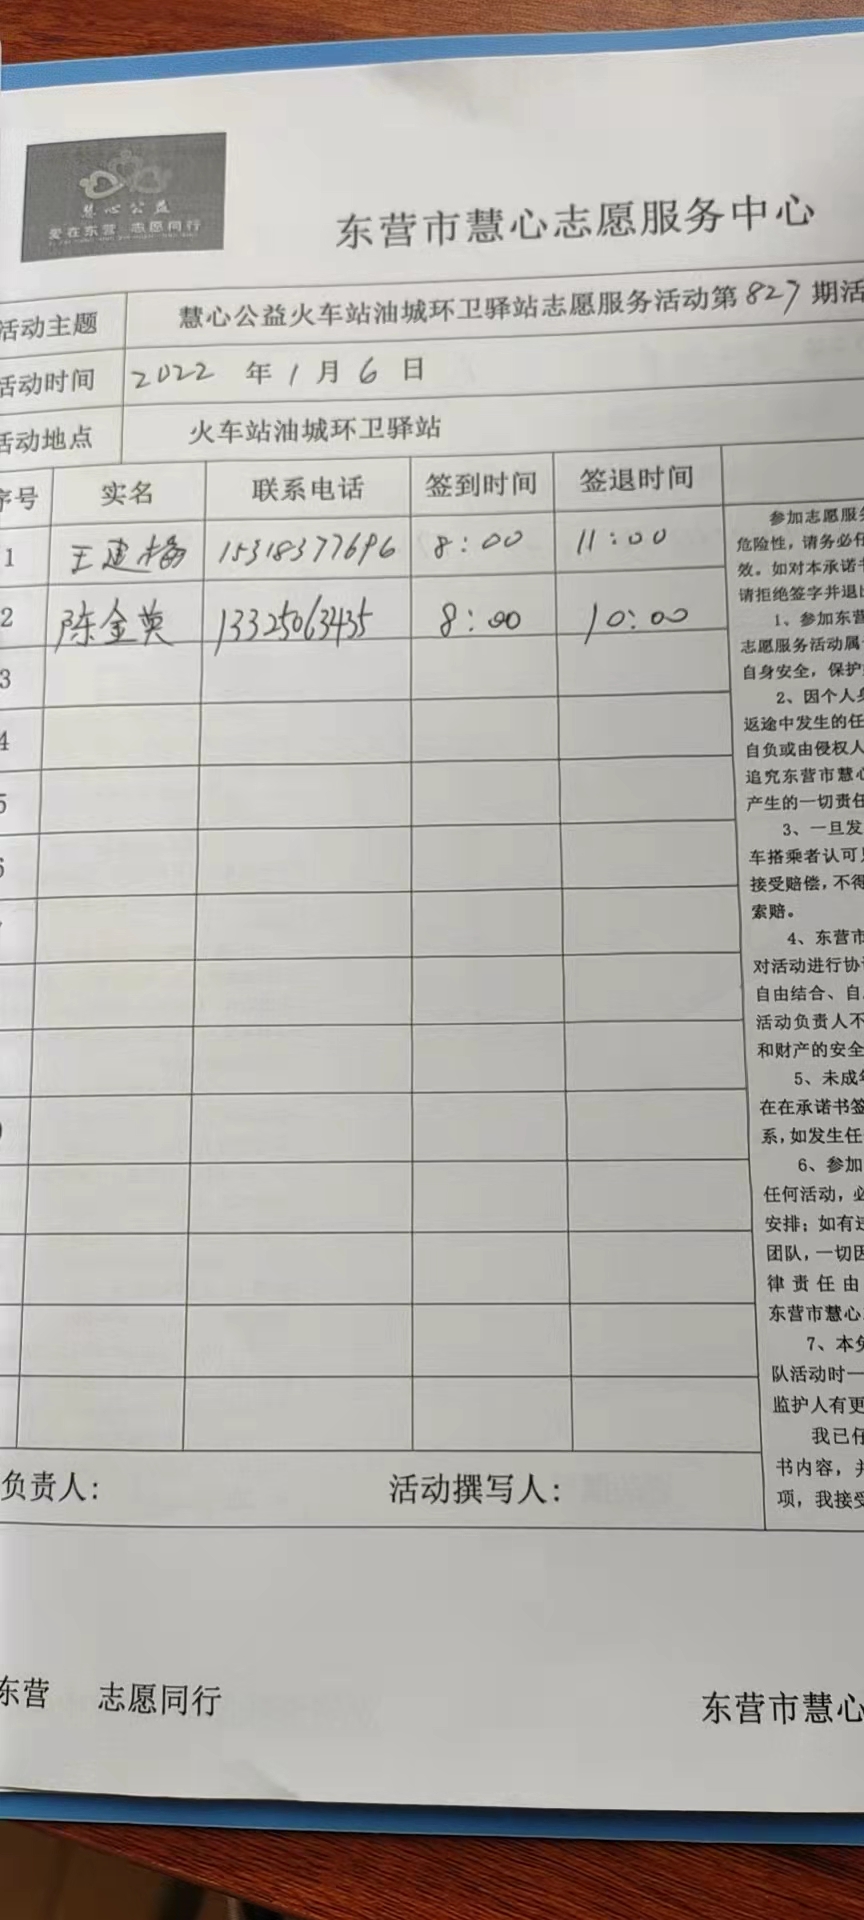 慧心公益
爱在东营 志愿同行
东营市慧心志愿服务中心
活动主题 慧心公益火车站油城环卫驿站志愿服务活动第827期活
活动时间 2022 年 1 月 6 日
活动地点 火车站油城环卫驿站
序号 实名 联系电话 签到时间 签退时间
1 王建梅 15318377696 8:00 11:00
2 陈金英 13325063435 8:00 10:00
3
4
5
6
负责人: 活动撰写人:
参加志愿服务
危险性,请务必仔
效。如对本承诺书
请拒绝签字并退出
1、参加东营
志愿服务活动属于
自身安全,保护
2、因个人身
返途中发生的任
自负或由侵权人
追究东营市慧心
产生的一切责任
3、一旦发
车搭乘者认可
接受赔偿,不得
索赔。
4、东营市
对活动进行协
自由结合、自
活动负责人不
和财产的安全
5、未成年
在在承诺书签
系,如发生任
6、参加
任何活动,必
安排;如有违
团队,一切因
律责任由
东营市慧心
7、本免
队活动时一
监护人有更
我已仔
书内容,并
项,我接受
东营 志愿同行
东营市慧心